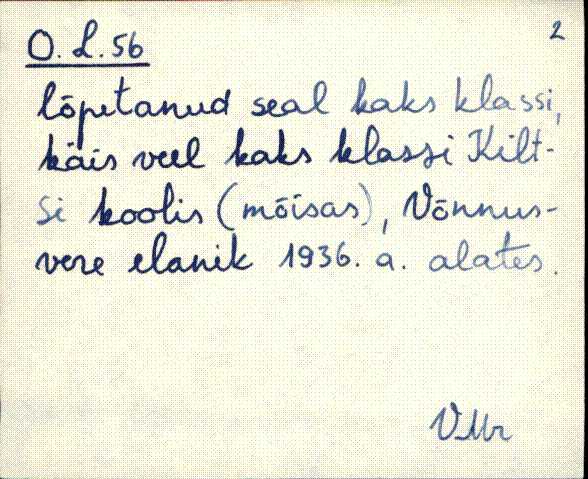 2
O. L. 56
lõpetanud seal kaks klassi,
käis veel kaks klassi Kilt-
si koolis (mõisas), Võnnus-
vere elanik 1936. a. alates.
VMr